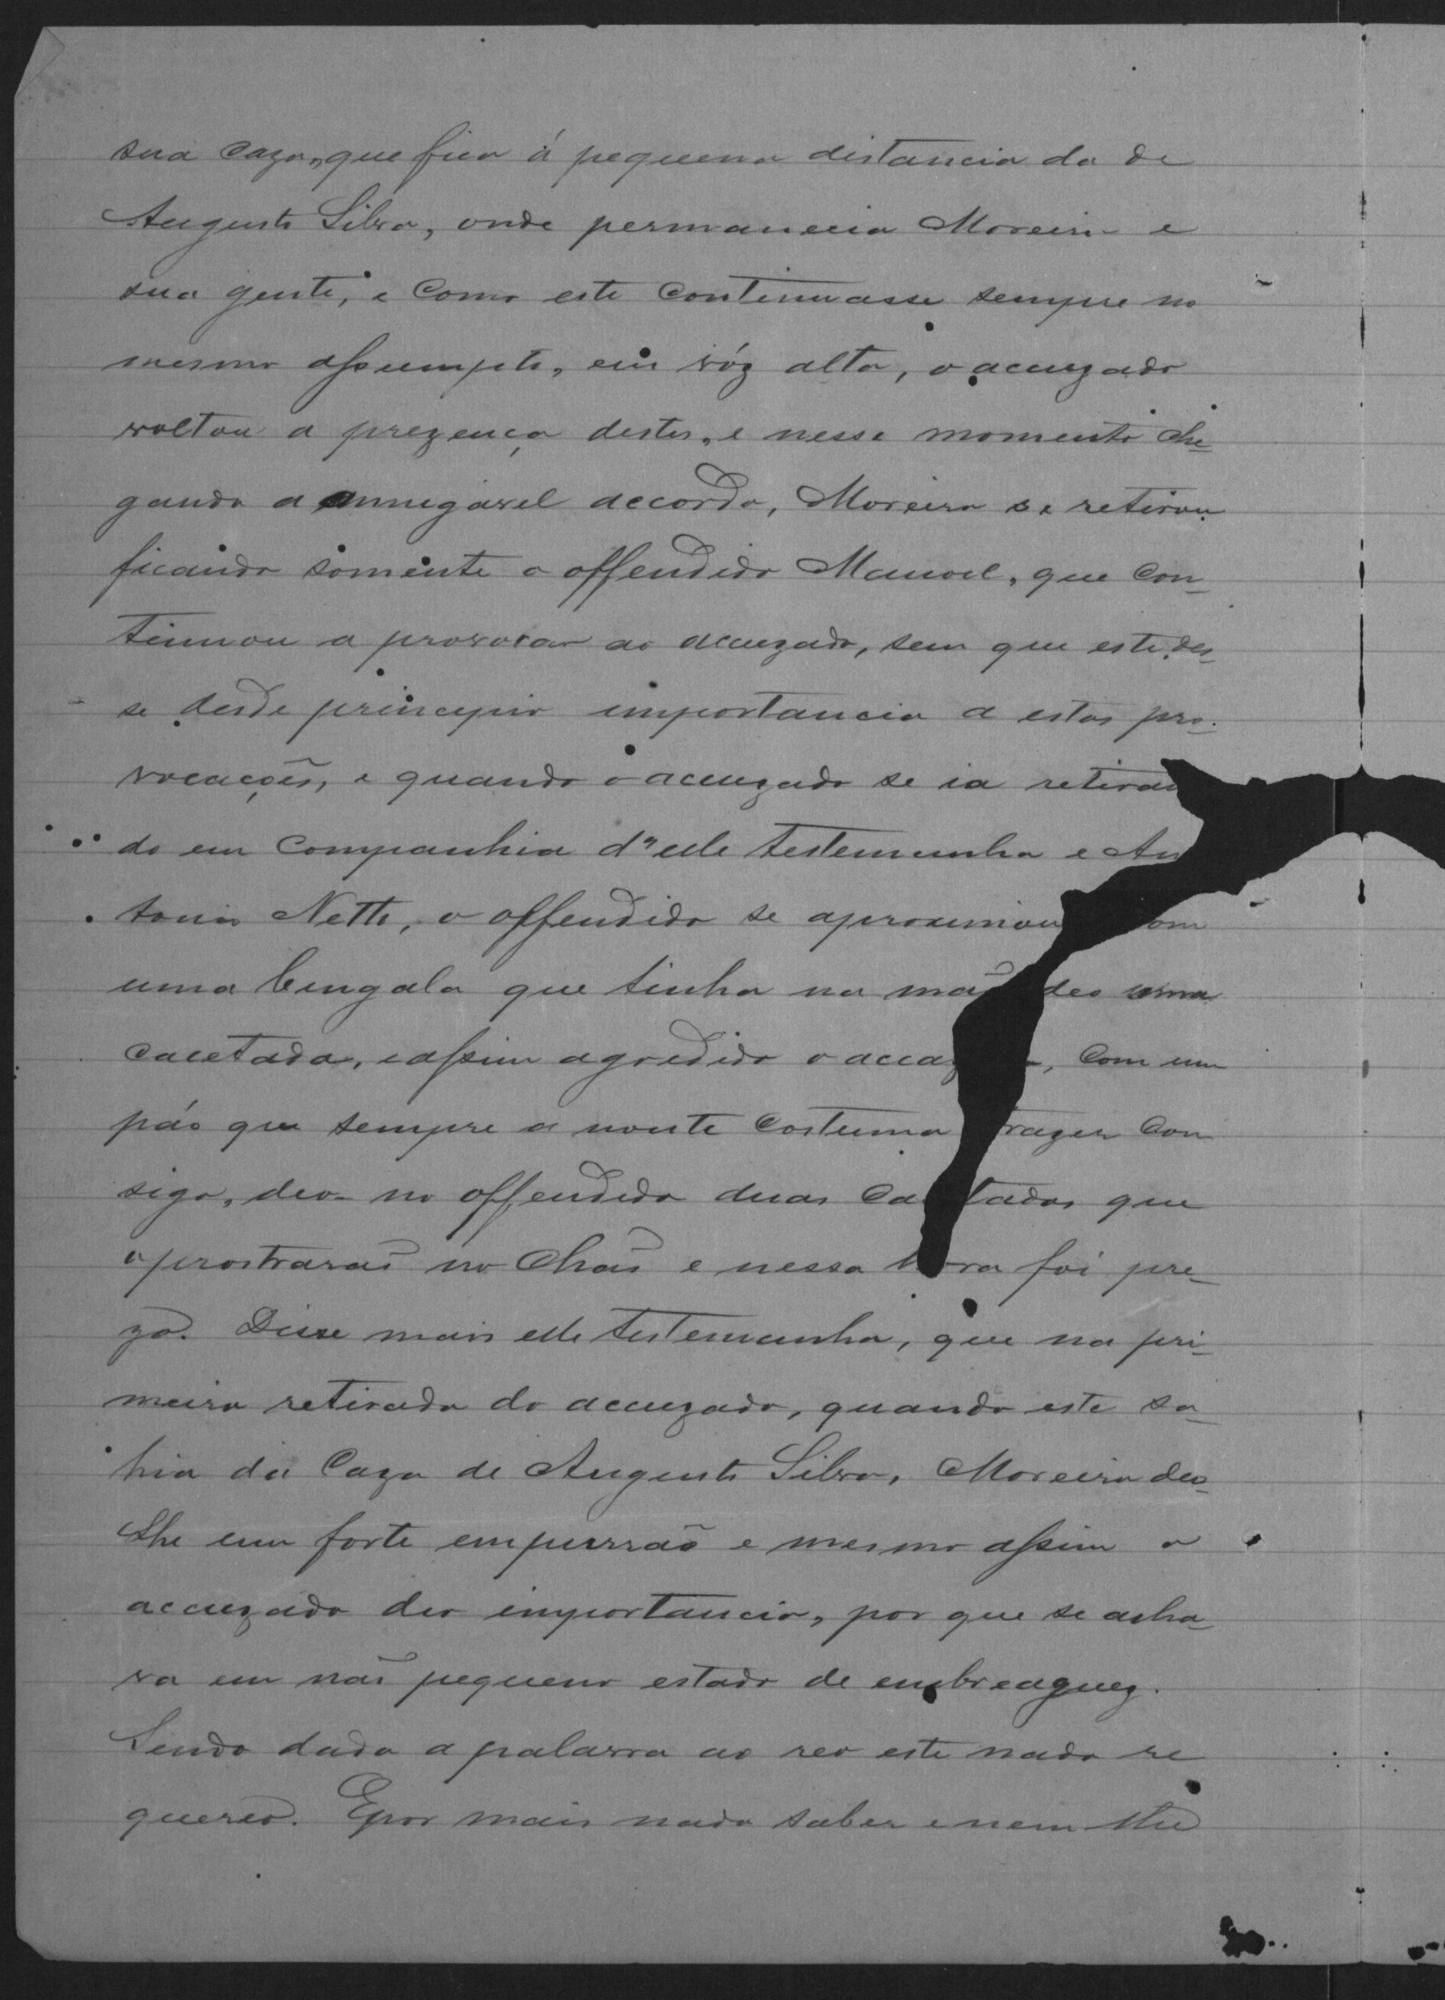 sua caza, que fica á pequena distancia da de
Augusto Silva, onde permanecia Moreira e
sua gente, e como este continuasse sempre no
mesmo assumpto, em vóz alta, o acuzado
voltou a prezença destes, e nesse momento che-
gando a amigavel accordo, Moreira se retirou
ficando somente o offendido Manoel, que con-
tinuou a provocar ao acuzado, sem que este des-
se desde principio importancia a estas pro-
vocacções, e quando o acuzado se ia retiran
do em companhia d'elle testemunha e An
tonio Netto, o offendido se aproximou com
uma bengala que tinha na mão deo uma
cacetada, e assim agredido o, com um
páo que sempre a noute costuma trazer con
sigo, deo no offendido duas cacetadas que
o prostrarão no chão e nessa hora foi pre-
zo. Disse mais elle testemunha, que na pri-
meira retirada do acuzado, quando este sa-
hia da caza de Augusto Silva, Moreira deo-
lhe um forte empurrão e mesmo assim o
accuzado deo importancia, por que se acha-
va em não pequeno estado de embreaguez.
Sendo dada a palavra ao reo este nada re
quereo. E por mais nada saber e nem lhe